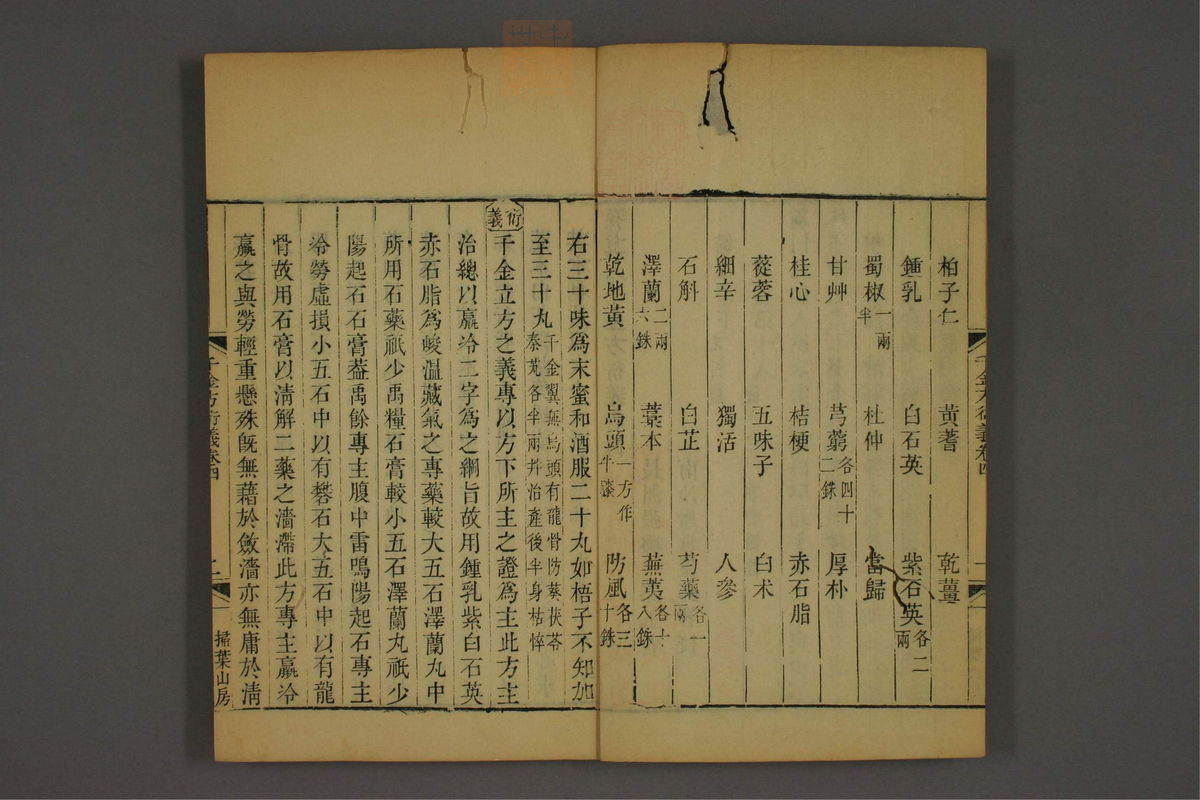 柏子仁 黃蓍 乾薑
鍾乳 白石英 紫石英各二兩
蜀椒一兩半 杜仲 當歸
甘艸 芎藭各四十二銖 厚朴
桂心 桔梗 赤石脂
蓯蓉 五味子 白朮
細辛 獨活 人參
石斛 白芷 芍藥各一兩
澤蘭二兩六銖 藁本 蕪荑各十八銖
乾地黃 烏頭一方作牛膝 防風各三十銖
右三十味爲末蜜和酒服二十丸如梧子不知加
至三十丸千金翼無烏頭有龍骨防葵茯苓秦艽各半兩幷治產後半身枯悴
衍義 千金立方之義專以方下所主之證爲主此方主
治總以羸冷二字爲之綱旨故用鍾乳紫白石英
赤石脂爲峻溫藏氣之專藥較大五石澤蘭丸中
所用石藥祇少禹糧石膏較小五石澤蘭丸祇少
陽起石石膏葢禹餘專主腹中雷鳴陽起石專主
冷勞虛損小五石中以有礬石大五石中以有龍
骨故用石膏以淸解二藥之濇滯此方專主羸冷
羸之與勞輕重懸殊旣無藉於斂濇亦無庸於淸
千金方衍義卷四
二
掃葉山房